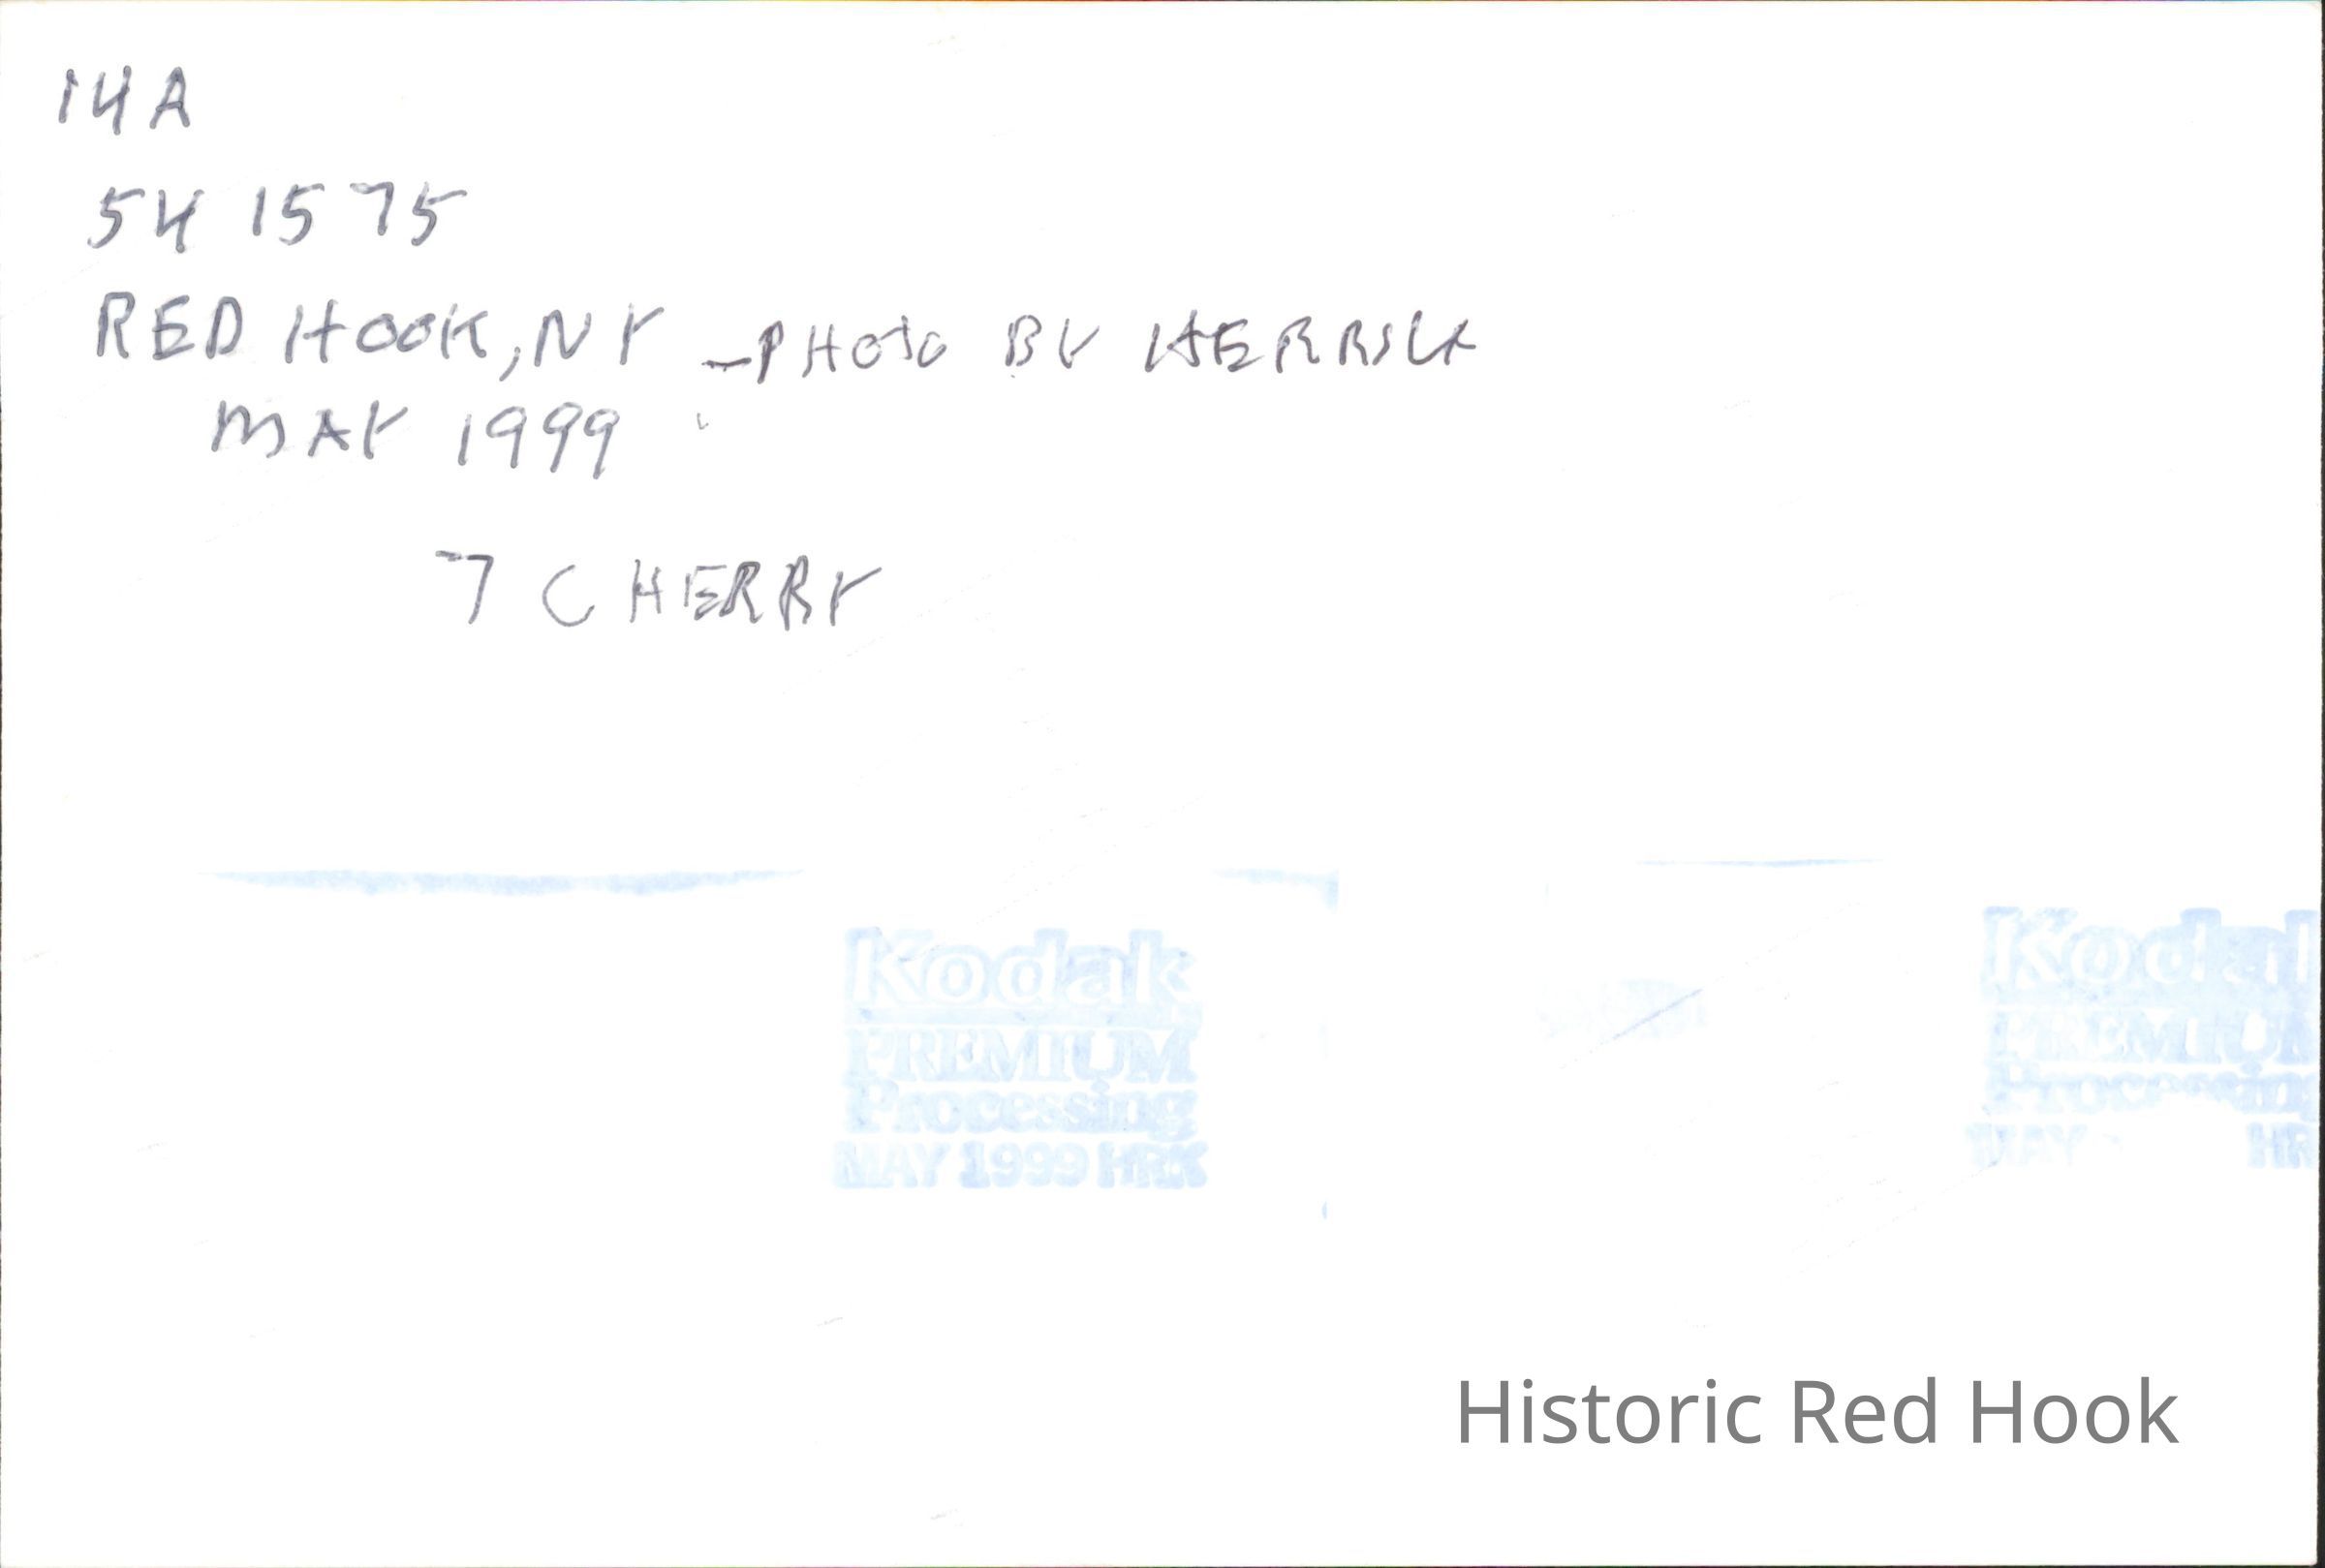 14A
54 1575
RED HOOK, NY - PHOTO BY HERRICK
MAY 1999
7 CHERRY
Kodak Kodak
PREMIUM PREMIUM
Processing Processing
MAY 1999 HRK MAY HR
Historic Red Hook